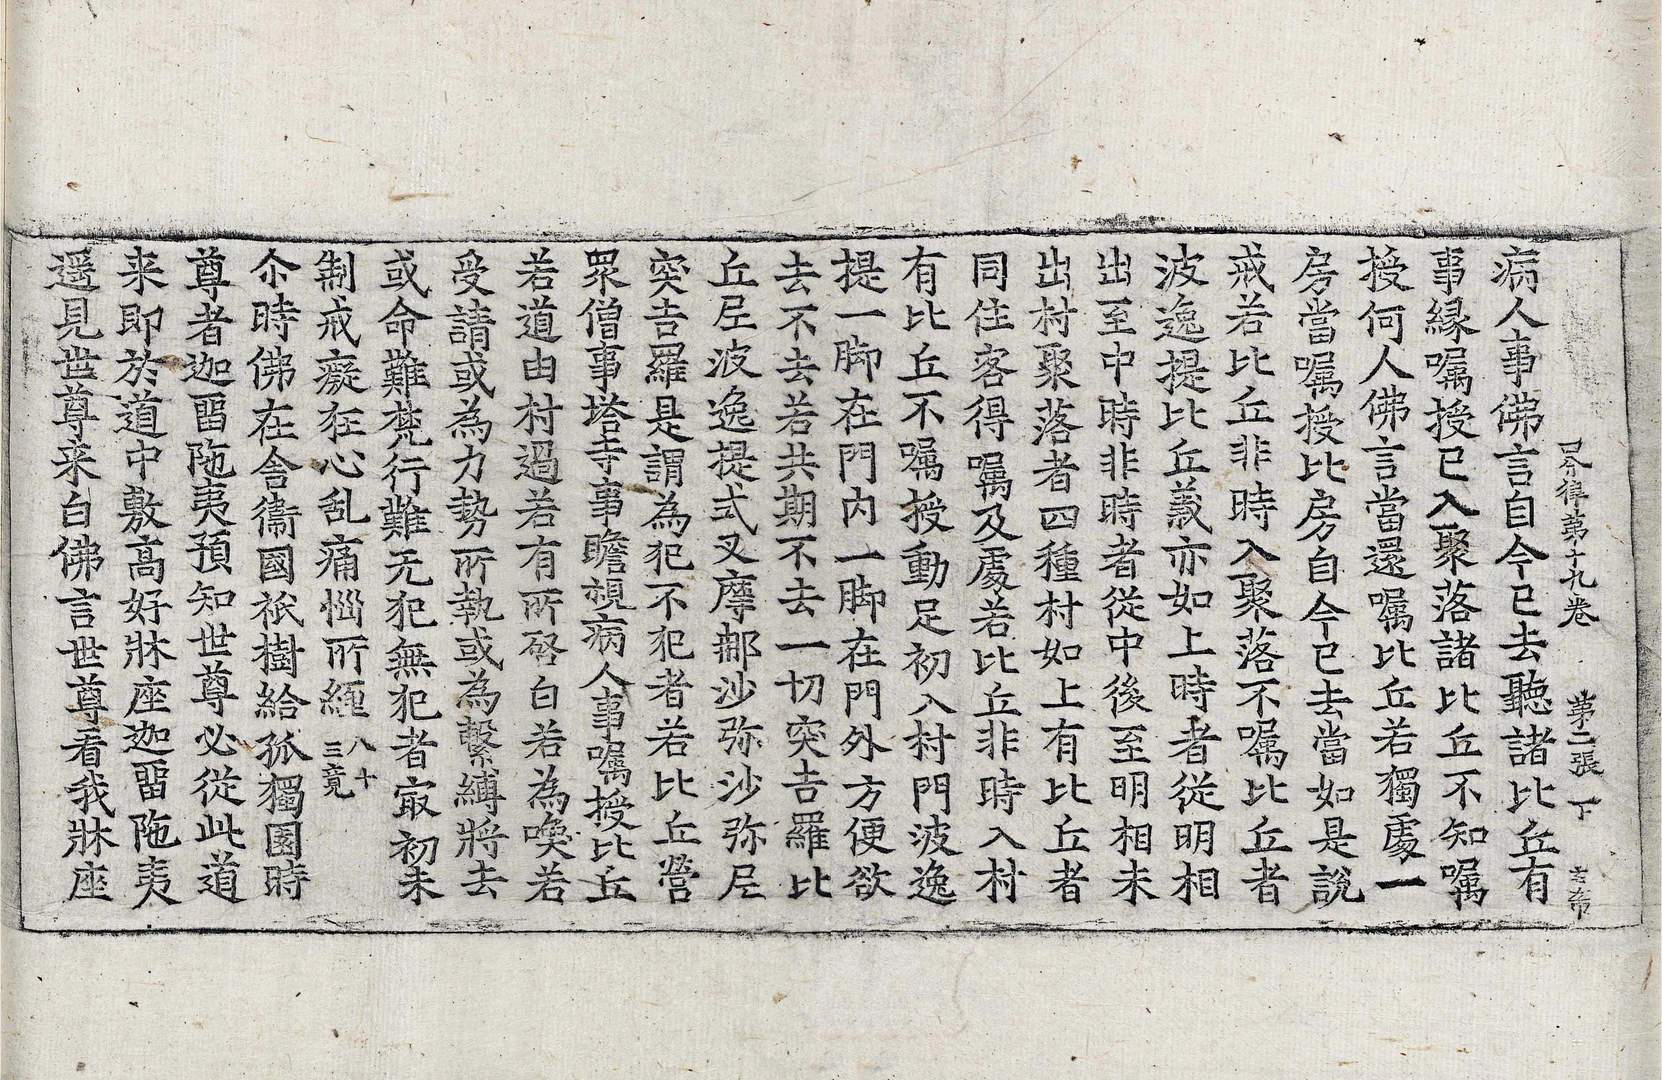 四分律第十九卷 第二張 下
病人事佛言自今已去聽諸比丘有
事縁囑授已入聚落諸比丘不知囑
授何人佛言當還囑比丘若獨處一
房當囑授比房自今已去當如是說
戒若比丘非時入聚落不囑比丘者
波逸提比丘義亦如上時者從明相
出至中時非時者從中後至明相未
出村聚落者四種村如上有比丘者
同住客得囑及處若比丘非時入村
有比丘不囑授動足初入村門波逸
提一脚在門内一脚在門外方便欲
去不去若共期不去一切突吉羅比
丘尼波逸提式叉摩那沙弥沙弥尼
突吉羅是謂為犯不犯者若比丘營
眾僧事塔寺事瞻視病人事囑授比丘
若道由村過若有所啓白若為喚若
受請或為力勢所執或為繫縛將去
或命難梵行難无犯無犯者㝡初未
制戒癡狂心乱痛惱所纏八十三竟
尒時佛在舍衞國祇樹給孤獨園時
尊者迦留陁夷預知世尊必從此道
来即於道中敷髙好牀座迦留陁夷
遥見世尊来白佛言世尊看我牀座